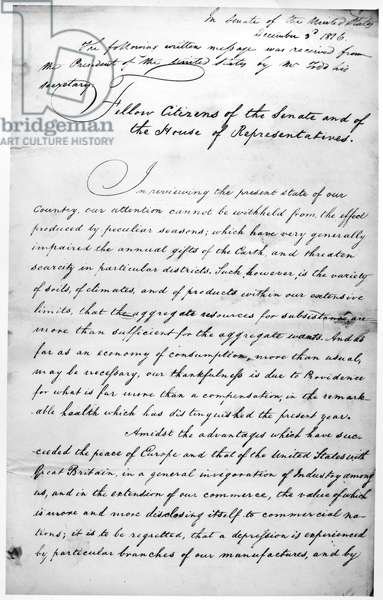 In Senate of the United States
December 3d 1816.
The following written message was received from
the President of the United States by Mr Todd his
secretary.
Fellow Citizens of the Senate and of
the House of Representatives.
In reviewing the present state of our
Country, our attention cannot be withheld from the effect
produced by peculiar seasons; which have very generally
impaired the annual gifts of the Earth, and threaten
scarcity in particular districts. Such, however, is the variety
of soils, of climates, and of products within our extensive
limits, that the aggregate resources for subsistence are
more than sufficient for the aggregate wants. And as
far as an economy of consumption, more than usual,
may be necessary, our thankfulness is due to Providence
for what is far more than a compensation, in the remark-
able health which has distinguished the present year.
Amidst the advantages which have suc-
ceeded the peace of Europe and that of the United States with
Great Britain, in a general invigoration of Industry among
us, and in the extension of our commerce, the value of which
is more and more disclosing itself to commercial na-
tions; it is to be regretted, that a depression is experienced
by particular branches of our manufactures, and by
bridgeman
images
ART CULTURE HISTORY
bridgeman
images